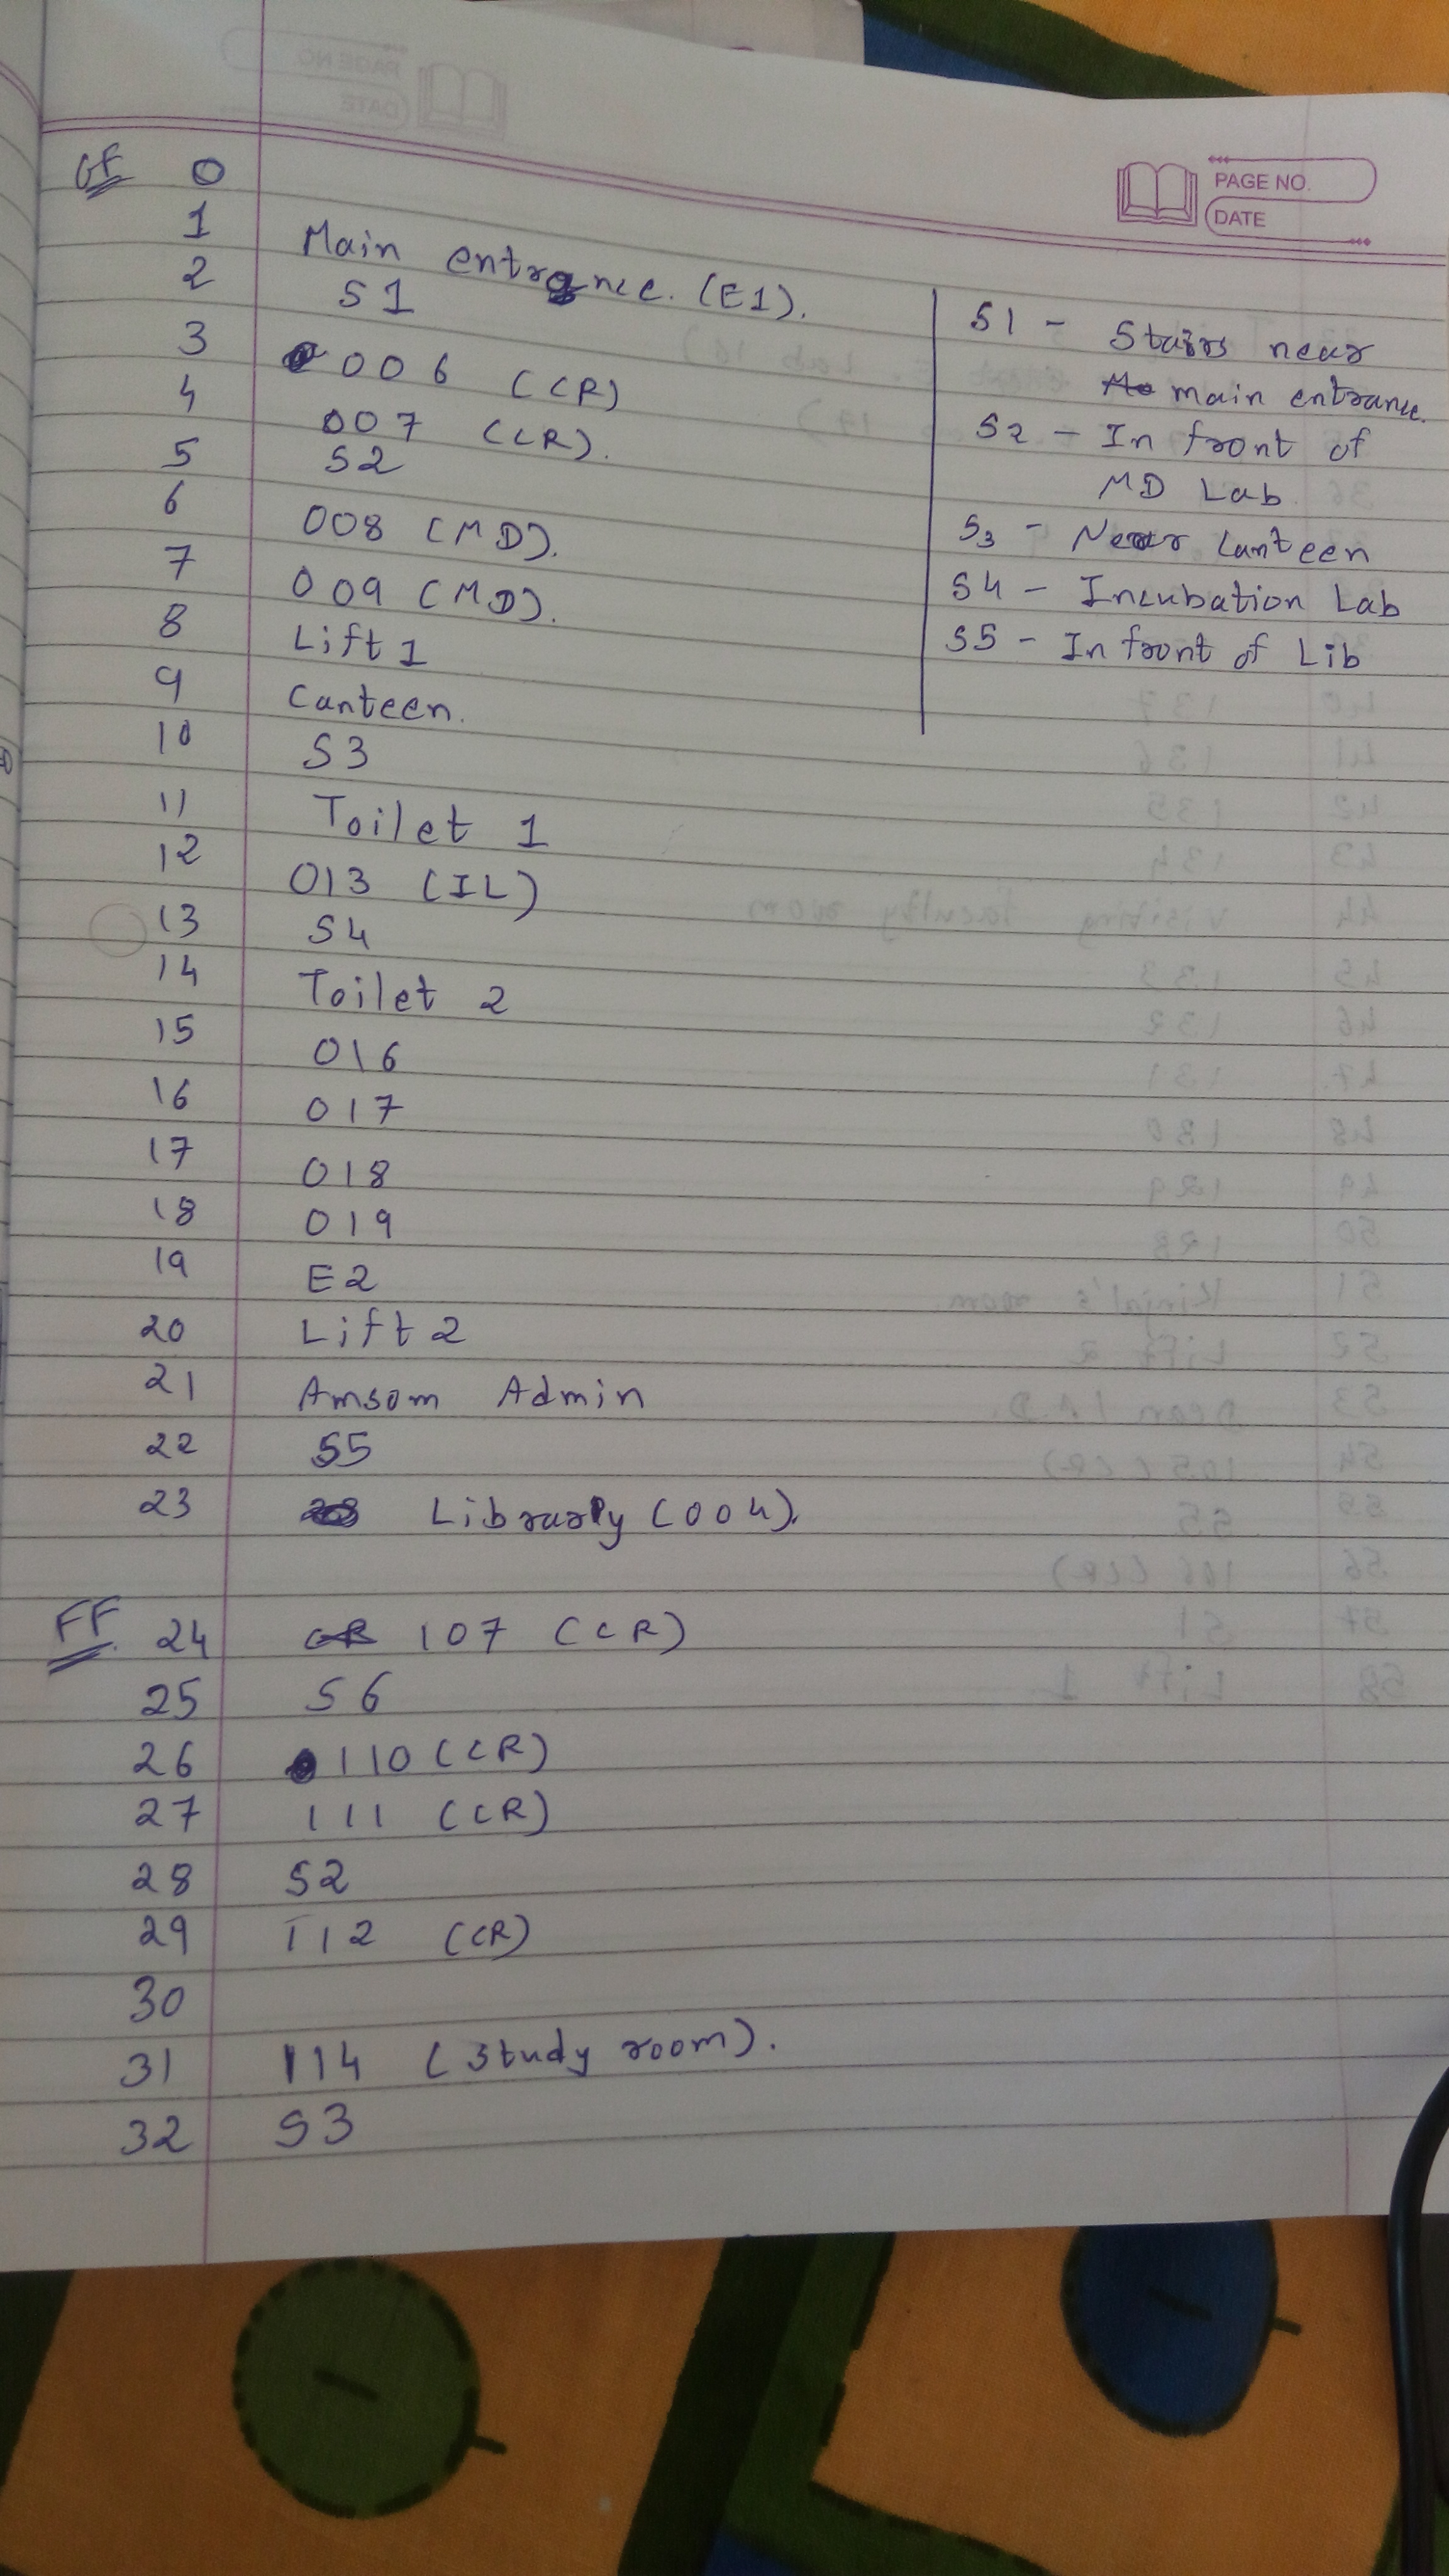 PAGE NO.
DATE
GF 0
1 Main entrance. (E1).
2 S1
3 006 (CR)
4 007 (CR).
5 S2
6 008 (MD).
7 009 (MD).
8 Lift 1
9 Canteen.
10 S3
11 Toilet 1
12 013 (IL)
13 S4
14 Toilet 2
15 016
16 017
17 018
18 019
19 E2
20 Lift 2
21 Amsom Admin
22 S5
23 Library (004).
FF. 24 107 (CR)
25 S6
26 110 (CR)
27 111 (CR)
28 S2
29 112 (CR)
30
31 114 (Study room).
32 S3
S1 - Stairs near
main entrance.
S2 - In front of
MD Lab
S3 - Near Canteen
S4 - Incubation Lab
S5 - In front of Lib